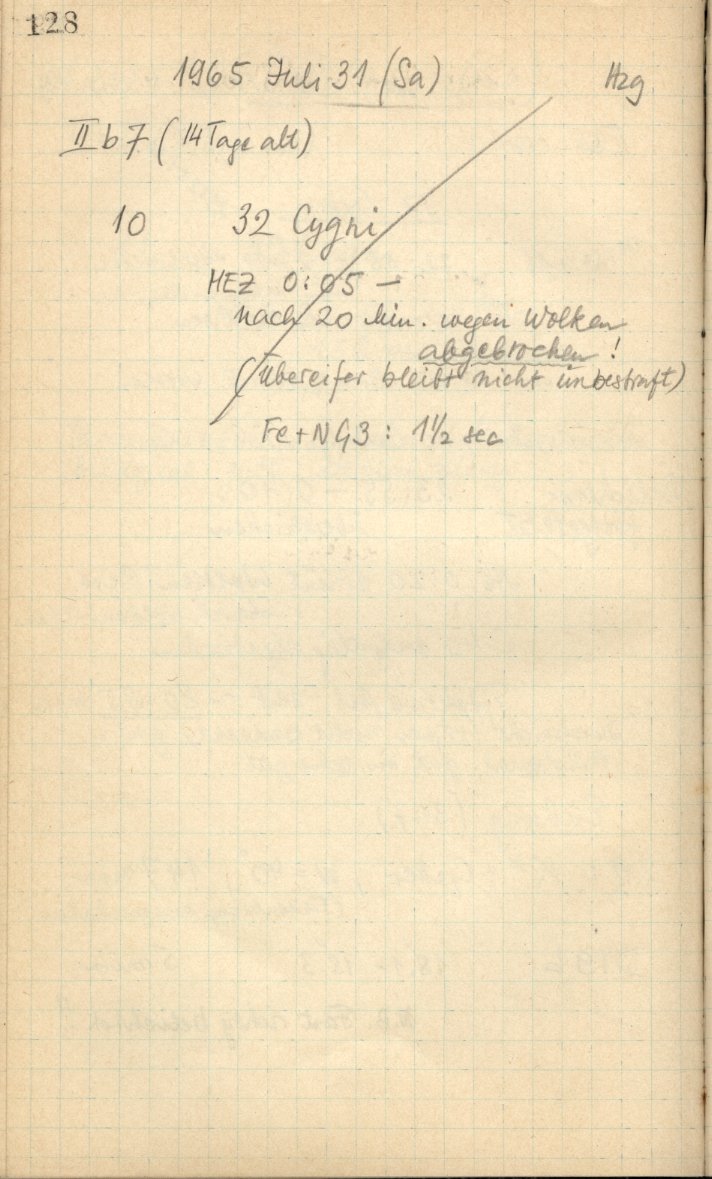 128
1965 Juli 31 (Sa) Hzg
II b 7 (14 Tage alt)
10 32 Cygni
MEZ 0:05 –
nach 20 Min. wegen Wolken
abgebrochen!
(Übereifer bleibt nicht unbestraft)
Fe+NG3: 1½ sec